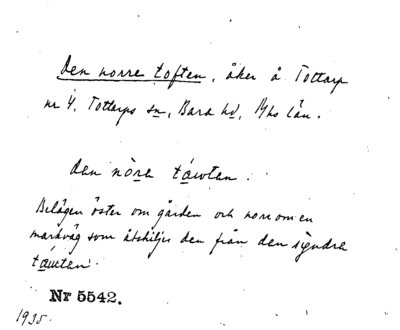 Den norre toften, åker å Tottarp
nr 4. Tottarps sn, Bara hd, Mhs län.
den nöra tåwten.
Belägen öster om gården och norr om en
markväg som åtskiljer den från den syndra
tåwten.
Nr 5542.
1935.